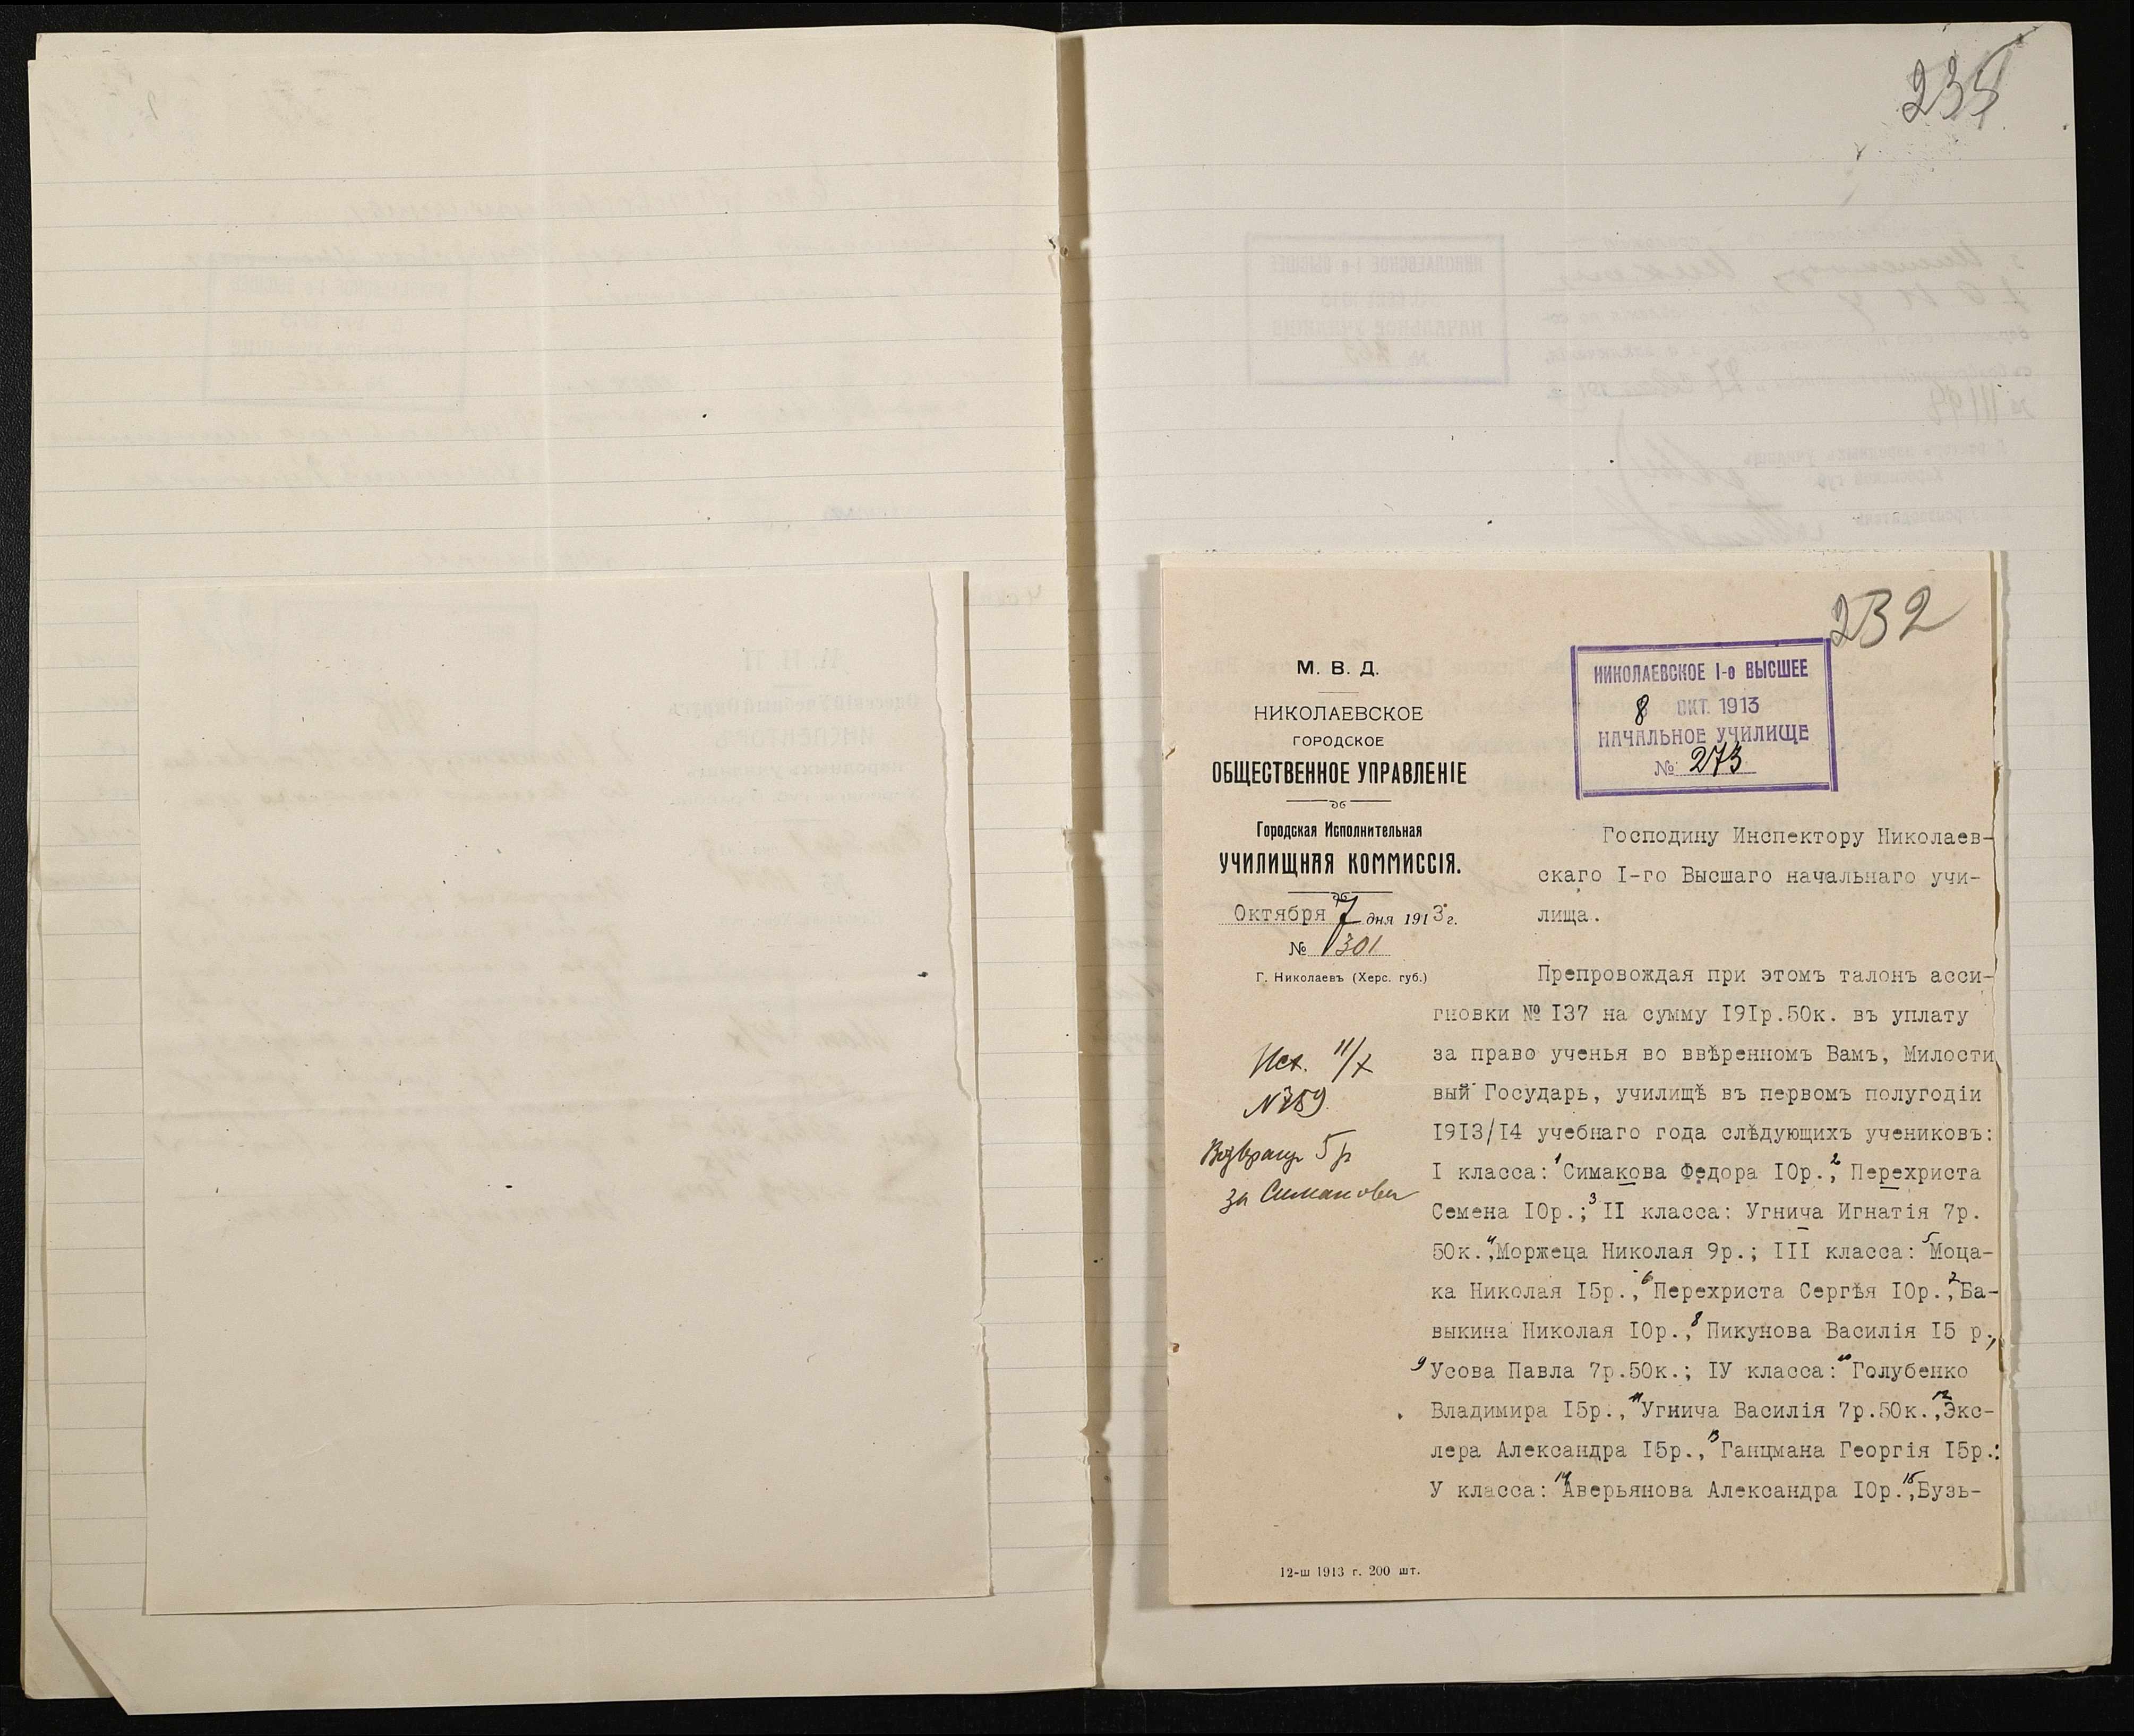 232
М. В. Д.
НИКОЛАЕВСКОЕ
ГОРОДСКОЕ
ОБЩЕСТВЕННОЕ УПРАВЛЕНІЕ
Городская Исполнительная
УЧИЛИЩНАЯ КОММИССІЯ.
Октября 7 дня 1913 г.
№ 1301
Г. Николаевъ (Херс. губ.)
НИКОЛАЕВСКОЕ I-е ВЫСШЕЕ
8 ОКТ. 1913
НАЧАЛЬНОЕ УЧИЛИЩЕ
№ 273
Господину Инспектору Николаев-
скаго I-го Высшаго начальнаго учи-
лища.
Препровождая при этомъ талонъ асси-
гновки № I37 на сумму I9Iр.50к. въ уплату
за право ученья во ввѣренномъ Вамъ, Милости
вый Государь, училищѣ въ первомъ полугодіи
I9I3/I4 учебнаго года слѣдующихъ учениковъ:
I класса: 1 Симакова Федора I0р., 2 Перехриста
Семена I0р.; 3 II класса: Угнича Игнатія 7р.
50к., 4 Моржеца Николая 9р.; III класса: 5 Моца-
ка Николая I5р., 6 Перехриста Сергѣя I0р., 7 Ба-
выкина Николая I0р., 8 Пикунова Василія I5 р.,
9 Усова Павла 7р.50к.; IУ класса: 10 Голубенко
Владимира I5р., 11 Угнича Василія 7р.50к., 12 Экс-
лера Александра I5р., 13 Ганцмана Георгія I5р.:
У класса: 14 Аверьянова Александра I0р., 15 Бузь-
Исх. 11/X
№ 289
Возвращ 5 р
за Симакова
12-ш 1913 г. 200 шт.